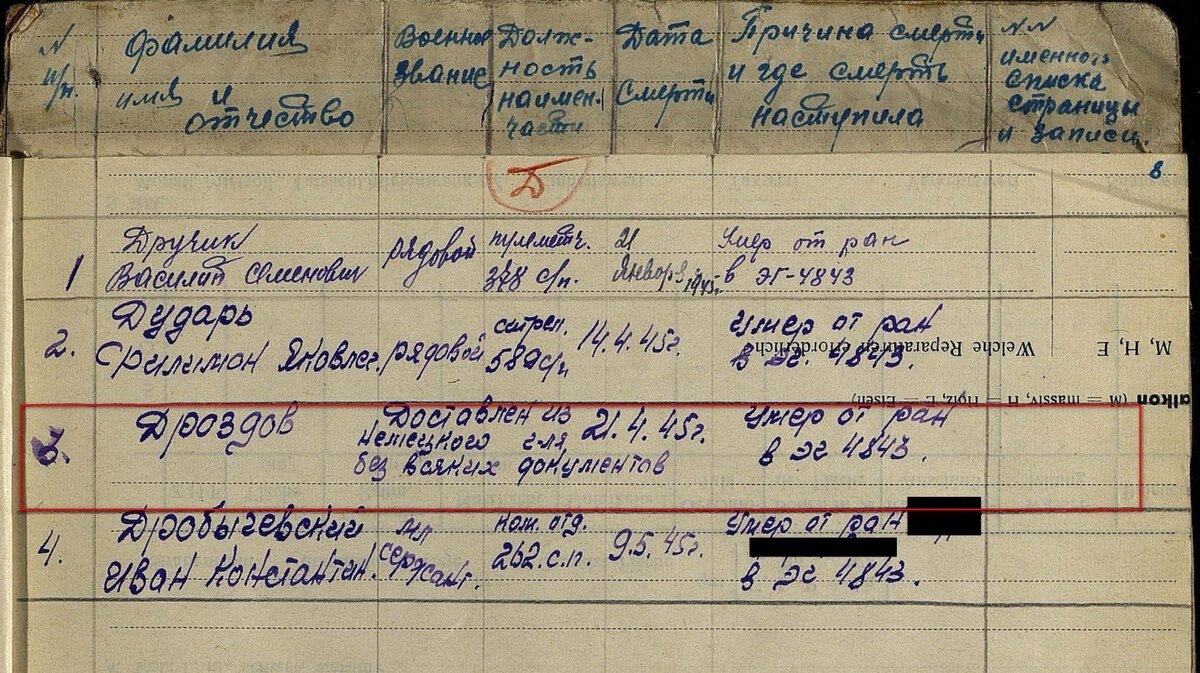 N п/п.
фамилия
имя и
отчество
Военное
звание
Долж-
ность
наимен.
части
Дата
смерти
Причина смерти
и где смерть
наступила
NN
именного
списка
страницы
и записи.
8
Д
1
Дручик
Василий Семенович
рядовой
пулеметч.
378 с/п.
21
Января 1945г.
Умер от ран
в ЭГ-4843
2.
Дударь
Филимон Яковлев.
рядовой
стрел.
589 с/п
14.4.45г.
Умер от ран
в эг. 4843.
Welche Reparaturen erforderlich?
M, H, E
alkon
(M = massiv, H = Holz, E = Eisen)
3.
Дроздов
Доставлен из
немецкого г-ля
без всяких документов
21.4.45г.
Умер от ран
в эг 4843.
4.
Дробычевский
Иван Константин.
мл
сержант.
ком. отд.
262.с.п.
9.5.45г.
Умер от ран
в эг 4843.